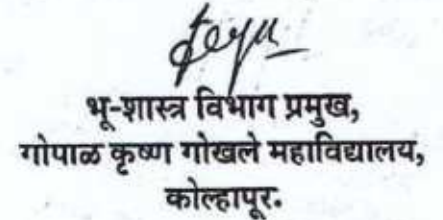 भू-शास्त्र विभाग प्रमुख,
गोपाळ कृष्ण गोखले महाविद्यालय,
कोल्हापूर.